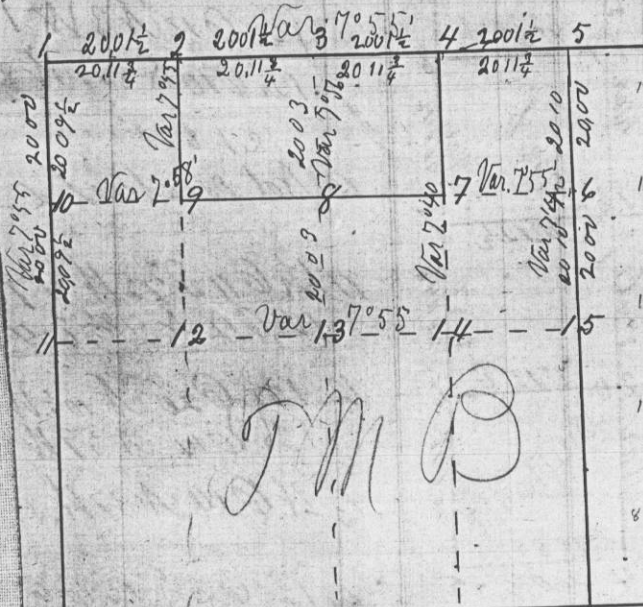 Var. 7°55'
1 20,01½ 2 2001½ 3 2001½ 4 2001½ 5
20,11¾ 20,11¾ 20 11¾ 20 11¾
20 00
20 09½
Var 7°55
2003
20 10
20,00
10 Var 7°58' 9 8 7 Var. 7°55 6
Var 7°55
20 00
20,09½
20 03
Var 7°40
20 10
20 00
11 12 Var 13 7°55 14 15
TM B
8